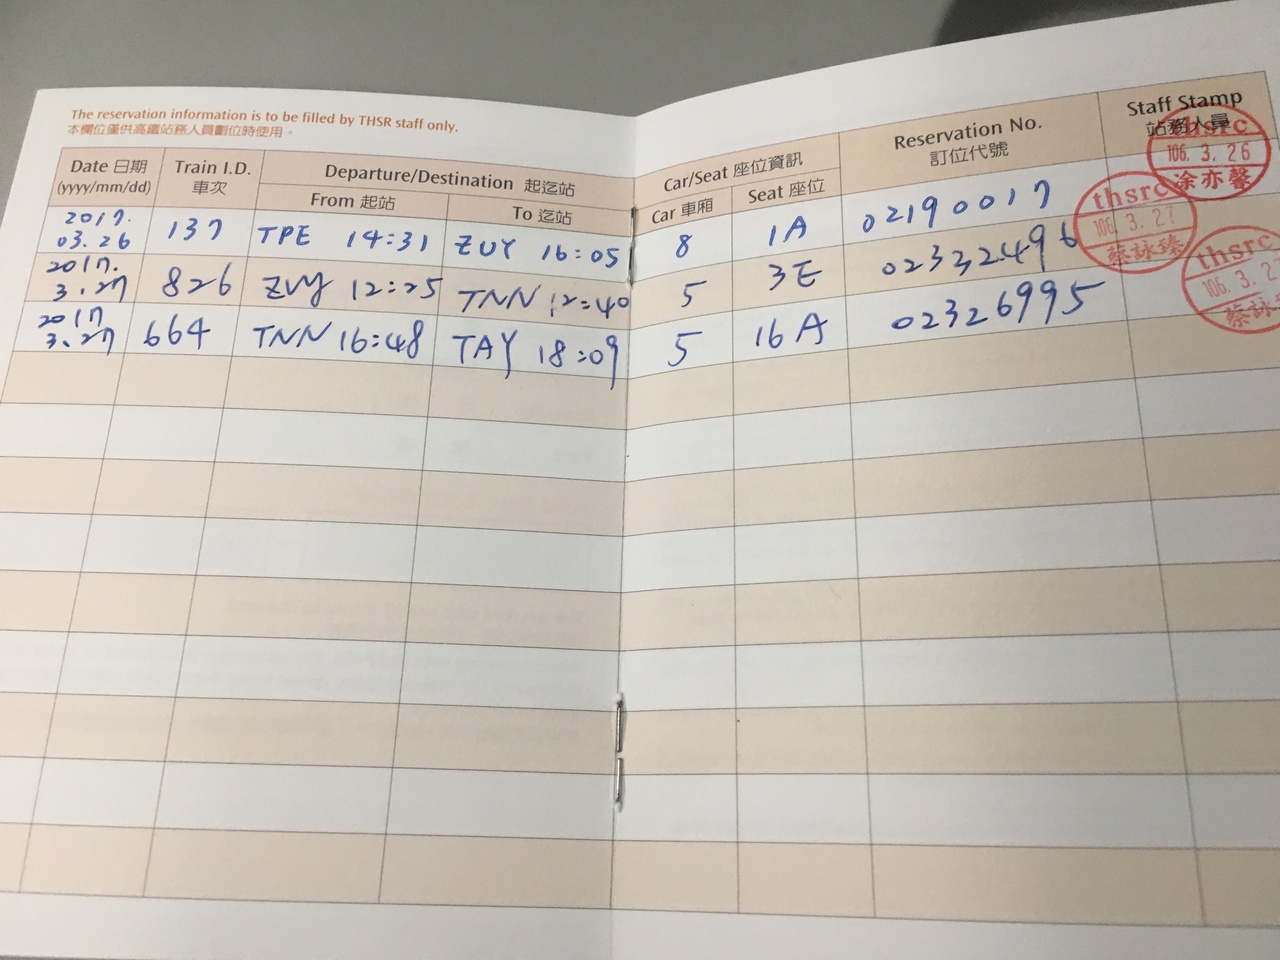 The reservation information is to be filled by THSR staff only.
本欄位僅供高鐵站務人員劃位時使用。
Date 日期 (yyyy/mm/dd)
Train I.D. 車次
Departure/Destination 起迄站
From 起站
To 迄站
Car/Seat 座位資訊
Car 車廂
Seat 座位
Reservation No. 訂位代號
Staff Stamp 站務人員
2017. 03.26 137 TPE 14:31 ZUY 16:05 8 1A 02190017
thsrc 106. 3. 26 涂亦馨
2017. 3.27 826 ZUY 12:25 TNN 12:40 5 3E 02332496
thsrc 106. 3. 27 蔡詠臻
2017 3.27 664 TNN 16:48 TAY 18:09 5 16A 02326995
thsrc 106. 3. 2 蔡詠